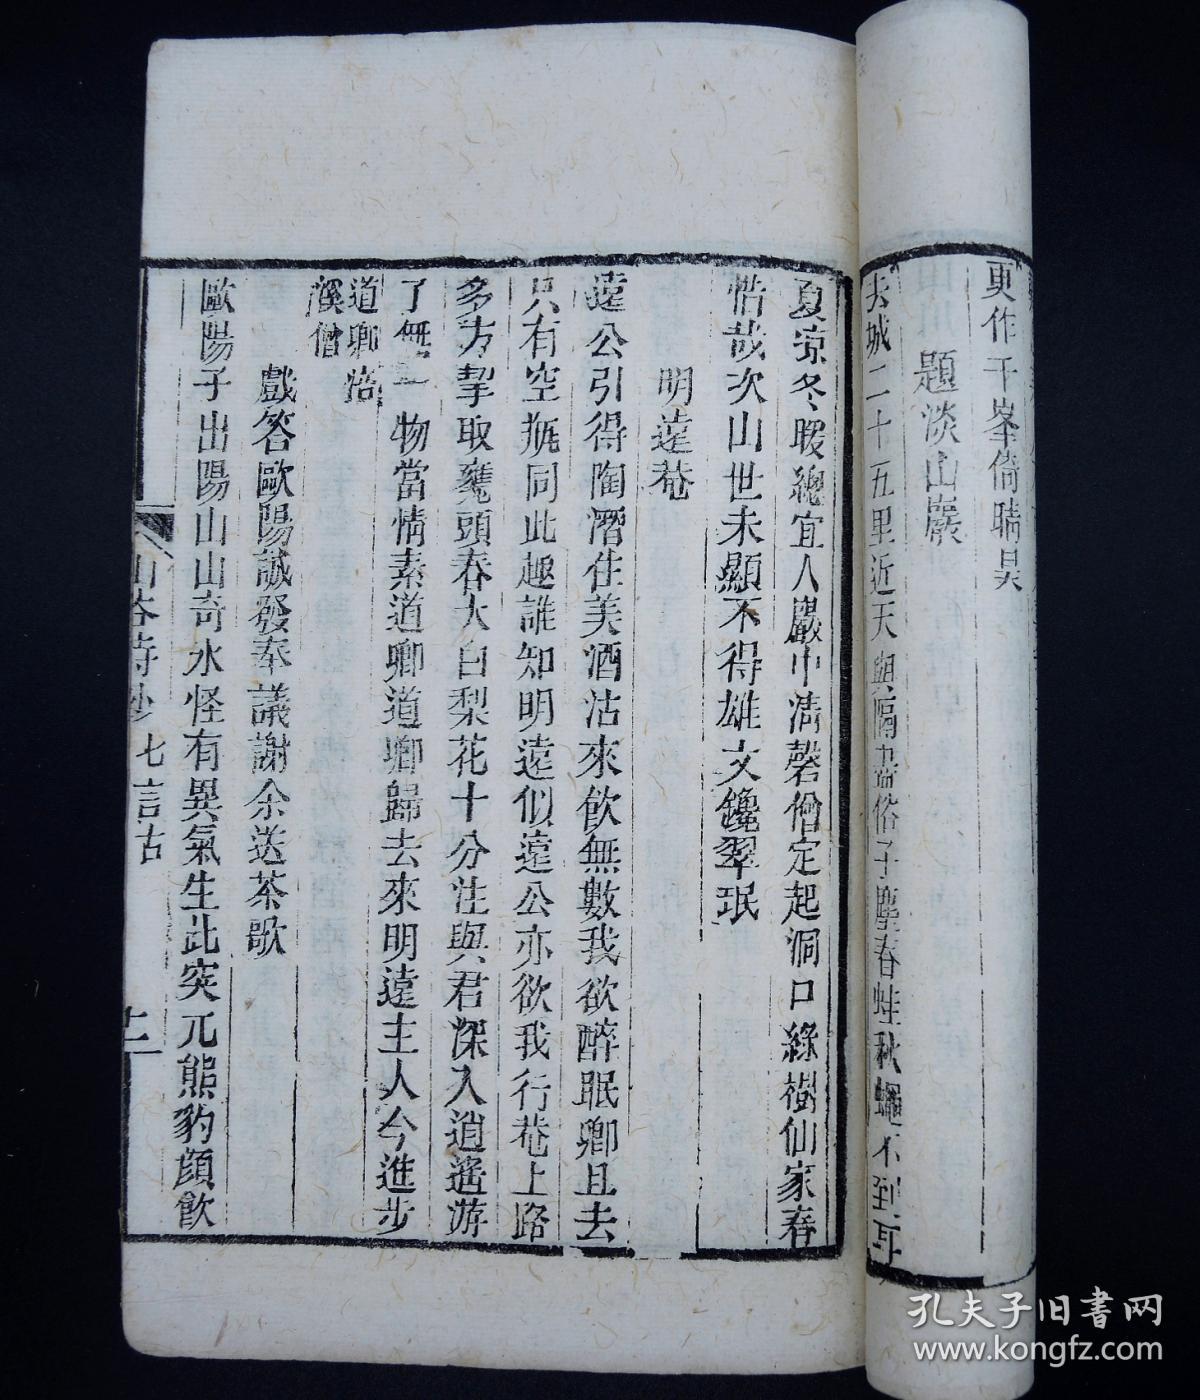 更作千峯倚晴昊
題淡山巖
去城二十五里近天與隔盡俗子塵春蛙秋蠅不到耳
夏涼冬暖總宜人巖中清磬僧定起洞口綠樹仙家春
惜哉次山世未顯不得雄文鑱翠珉
明遠菴
遠公引得陶潛住美酒沽來飲無數我欲醉眠卿且去
只有空瓶同此趣誰知明遠似遠公亦欲我行菴上路
多方挈取甕頭春大白梨花十分注與君深入逍遙游
了無一物當情素道卿道卿歸去來明遠主人今進步
道卿浯
溪僧
戲答歐陽誠發奉議謝余送茶歌
歐陽子出陽山山奇水怪有異氣生此突兀熊豹顏飲
山谷詩鈔 七言古
孔夫子旧書网
www.kongfz.com